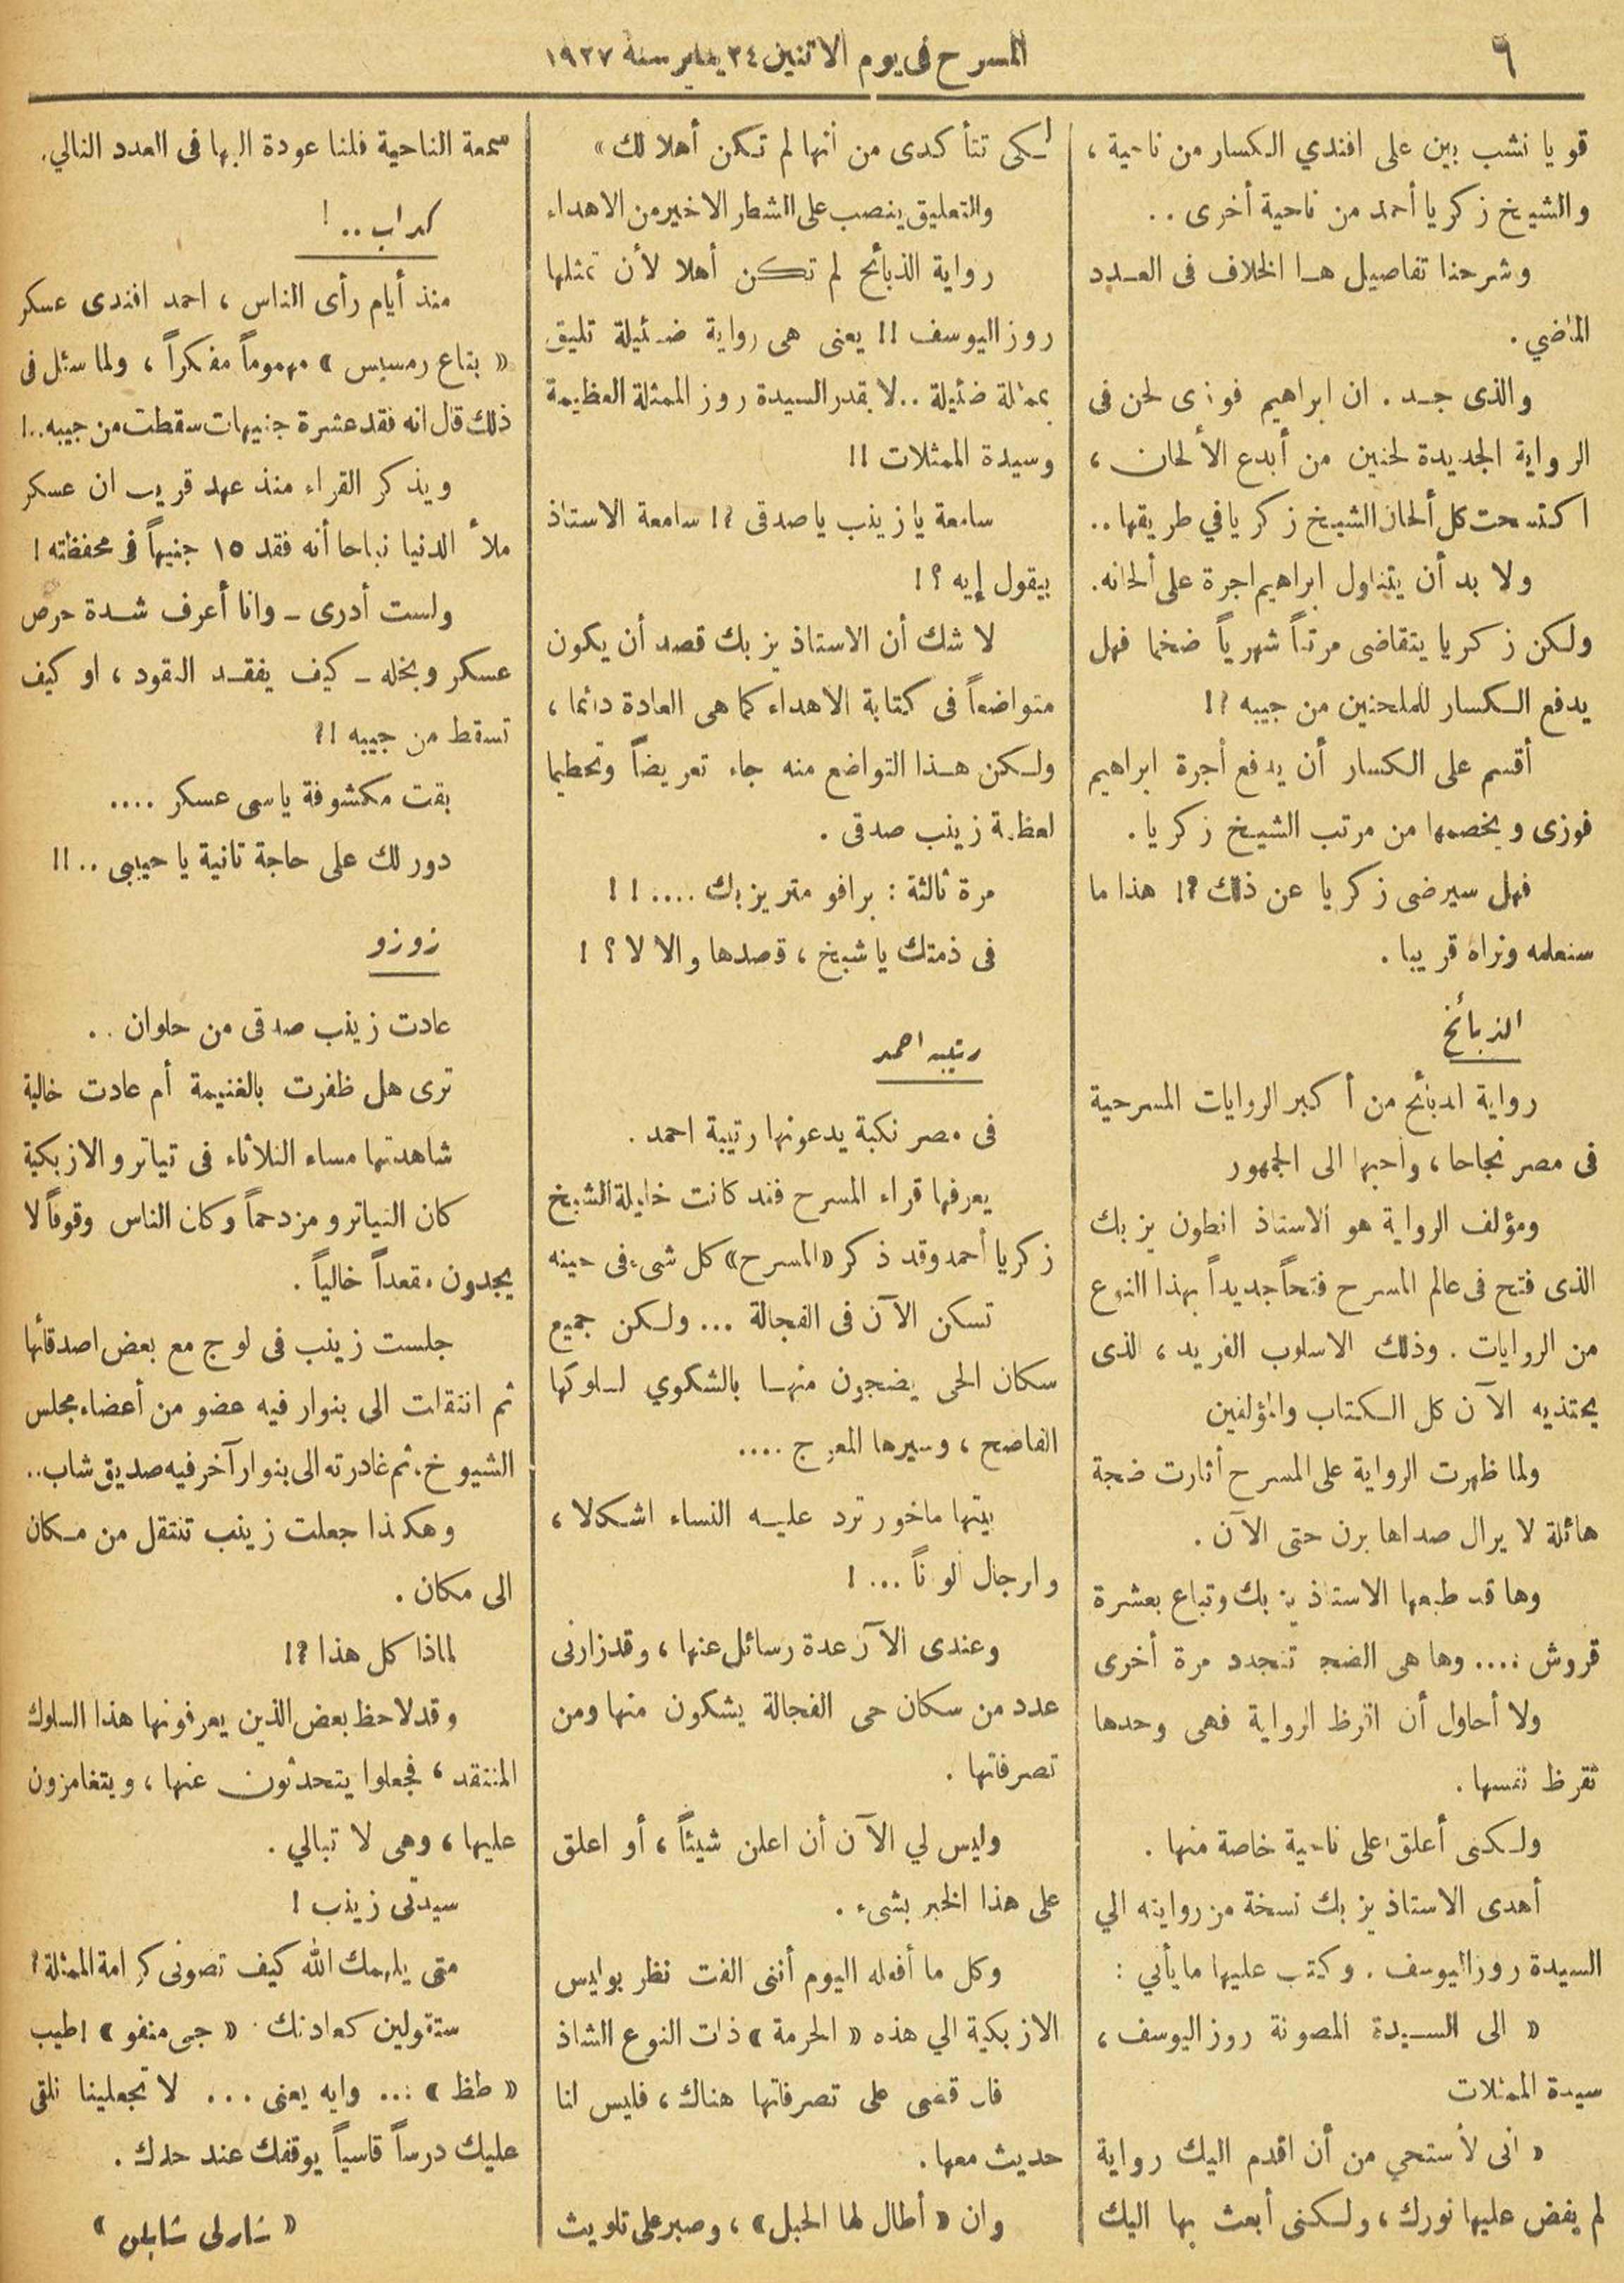 ٦
المسرح فى يوم الاثنين ٢٤ يناير سنة ١٩٢٧
قويا نشب بين على افندي الكسار من ناحية ،
والشيخ زكريا أحمد من ناحية أخرى ..
وشرحنا تفاصيل هذا الخلاف فى العدد
الماضي .
والذى جد . ان ابراهيم فوزى لحن فى
الرواية الجديدة لحنين من أبدع الألحان ،
اكتسحت كل ألحان الشيخ زكريا في طريقها ..
ولا بد أن يتناول ابراهيم اجرة على ألحانه .
ولكن زكريا يتقاضى مرتباً شهرياً ضخما فهل
يدفع الكسار للملحنين من جيبه ؟!
أقسم على الكسار أن يدفع أجرة ابراهيم
فوزى ويخصمها من مرتب الشيخ زكريا .
فهل سيرضى زكريا عن ذلك ؟! هذا ما
سنعلمه ونراه قريبا .
الذبائح
رواية الذبائح من أكبر الروايات المسرحية
فى مصر نجاحا ، واحبها الى الجمهور
ومؤلف الرواية هو الاستاذ انطون يزبك
الذى فتح فى عالم المسرح فتحاً جديداً بهذا النوع
من الروايات . وذلك الاسلوب الفريد ، الذى
يحتذيه الآن كل الكتاب والمؤلفين
ولما ظهرت الرواية على المسرح أثارت ضجة
هائلة لا يزال صداها يرن حتى الآن .
وها قد طبعها الاستاذ يزبك وتباع بعشرة
قروش .... وها هى الضجة تتجدد مرة أخرى
ولا أحاول أن اقرظ الرواية فهى وحدها
تقرظ نفسها .
ولكنى أعلق على ناحية خاصة منها .
أهدى الاستاذ يزبك نسخة من روايته الي
السيدة روز اليوسف . وكتب عليها ما يأتي :
« الى السيدة المصونة روز اليوسف ،
سيدة الممثلات
« انى لأستحي من أن اقدم اليك رواية
لم يفض عليها نورك ، ولكنى أبعث بها اليك
لكى تتأكدى من أنها لم تكن أهلا لك »
والتعليق ينصب على الشطر الاخير من الاهداء
رواية الذبائح لم تكن أهلا لأن تمثلها
روز اليوسف !! يعنى هى رواية ضئيلة تليق
بممثلة ضئيلة .. لا بقدر السيدة روز الممثلة العظيمة
وسيدة الممثلات !!
سامعة يا زينب يا صدقى ؟! سامعة الاستاذ
بيقول إيه ؟ !
لا شك أن الاستاذ يزبك قصد أن يكون
متواضعاً فى كتابة الاهداء كما هى العادة دائما ،
ولكن هذا التواضع منه جاء تعريضاً وتحطيما
لعظمة زينب صدقى .
مرة ثالثة : برافو متر يزبك .... ! !
فى ذمتك يا شيخ ، قصدها والا لا ؟ !
رتيبه احمد
فى مصر نكبة يدعونها رتيبة احمد .
يعرفها قراء المسرح فقد كانت خليلة الشيخ
زكريا أحمد وقد ذكر «المسرح» كل شىء فى حينه
تسكن الآن فى الفجالة ... ولكن جميع
سكان الحى يضجون منها بالشكوي لسلوكها
الفاضح ، وسيرها المعوج ....
بيتها ماخور ترد عليه النساء اشكالا ،
وارجال الوناً ... !
وعندى الآن عدة رسائل عنها ، وقد زارنى
عدد من سكان حى الفجالة يشكون منها ومن
تصرفاتها .
وليس لي الآن أن اعلن شيئاً ، أو اعلق
على هذا الخبر بشىء .
وكل ما أفعله اليوم أننى الفت نظر بوليس
الازبكية الي هذه « الحرمة » ذات النوع الشاذ
فان قضى على تصرفاتها هناك ، فليس لنا
حديث معها .
وان « أطال لها الحبل » ، وصبر على تلويث
سمعة الناحية فلنا عودة اليها فى العدد التالي .
كداب .. !
منذ أيام رأى الناس ، احمد افندى عسكر
« بتاع رمسيس » مهموماً مفكراً ، ولما سئل فى
ذلك قال انه فقد عشرة جنيهات سقطت من جيبه ..!
ويذكر القراء منذ عهد قريب ان عسكر
ملأ الدنيا نباحا أنه فقد ١٥ جنيهاً فى محفظته !
ولست أدرى ـ وانا أعرف شدة حرص
عسكر وبخله ـ كيف يفقد النقود ، او كيف
تسقط من جيبه ؟!
بقت مكشوفة يا سى عسكر ....
دور لك على حاجة تانية يا حبيبى .. !!
زوزو
عادت زينب صدقى من حلوان ..
ترى هل ظفرت بالغنيمة أم عادت خالية
شاهدتها مساء الثلاثاء فى تياترو الازبكية
كان التياترو مزدحماً وكان الناس وقوفاً لا
يجدون مقعداً خالياً .
جلست زينب فى لوج مع بعض اصدقائها
ثم انتقلت الى بنوار فيه عضو من أعضاء مجلس
الشيوخ ، ثم غادرته الى بنوار آخر فيه صديق شاب ..
وهكذا جعلت زينب تنتقل من مكان
الى مكان .
لماذا كل هذا ؟!
وقد لاحظ بعض الذين يعرفونها هذا السلوك
المنتقد ، فجعلوا يتحدثون عنها ، ويتغامزون
عليها ، وهى لا تبالي .
سيدتى زينب !
متى يلهمك الله كيف تصونى كرامة الممثلة ؟
ستقولين كعادتك « جى منفو » اطيب
« طظ » ... وايه يعنى ... لا تجعلينا نلقى
عليك درساً قاسياً يوقفك عند حدك .
« شارلى شابلن »